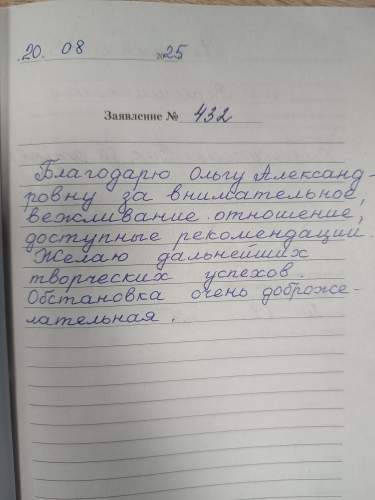 20. 08 2025
Заявление № 432
Благодарю Ольгу Александ-
ровну за внимательное,
вежливание отношение,
доступные рекомендации.
Желаю дальнейших
творческих успехов.
Обстановка очень доброже-
лательная.